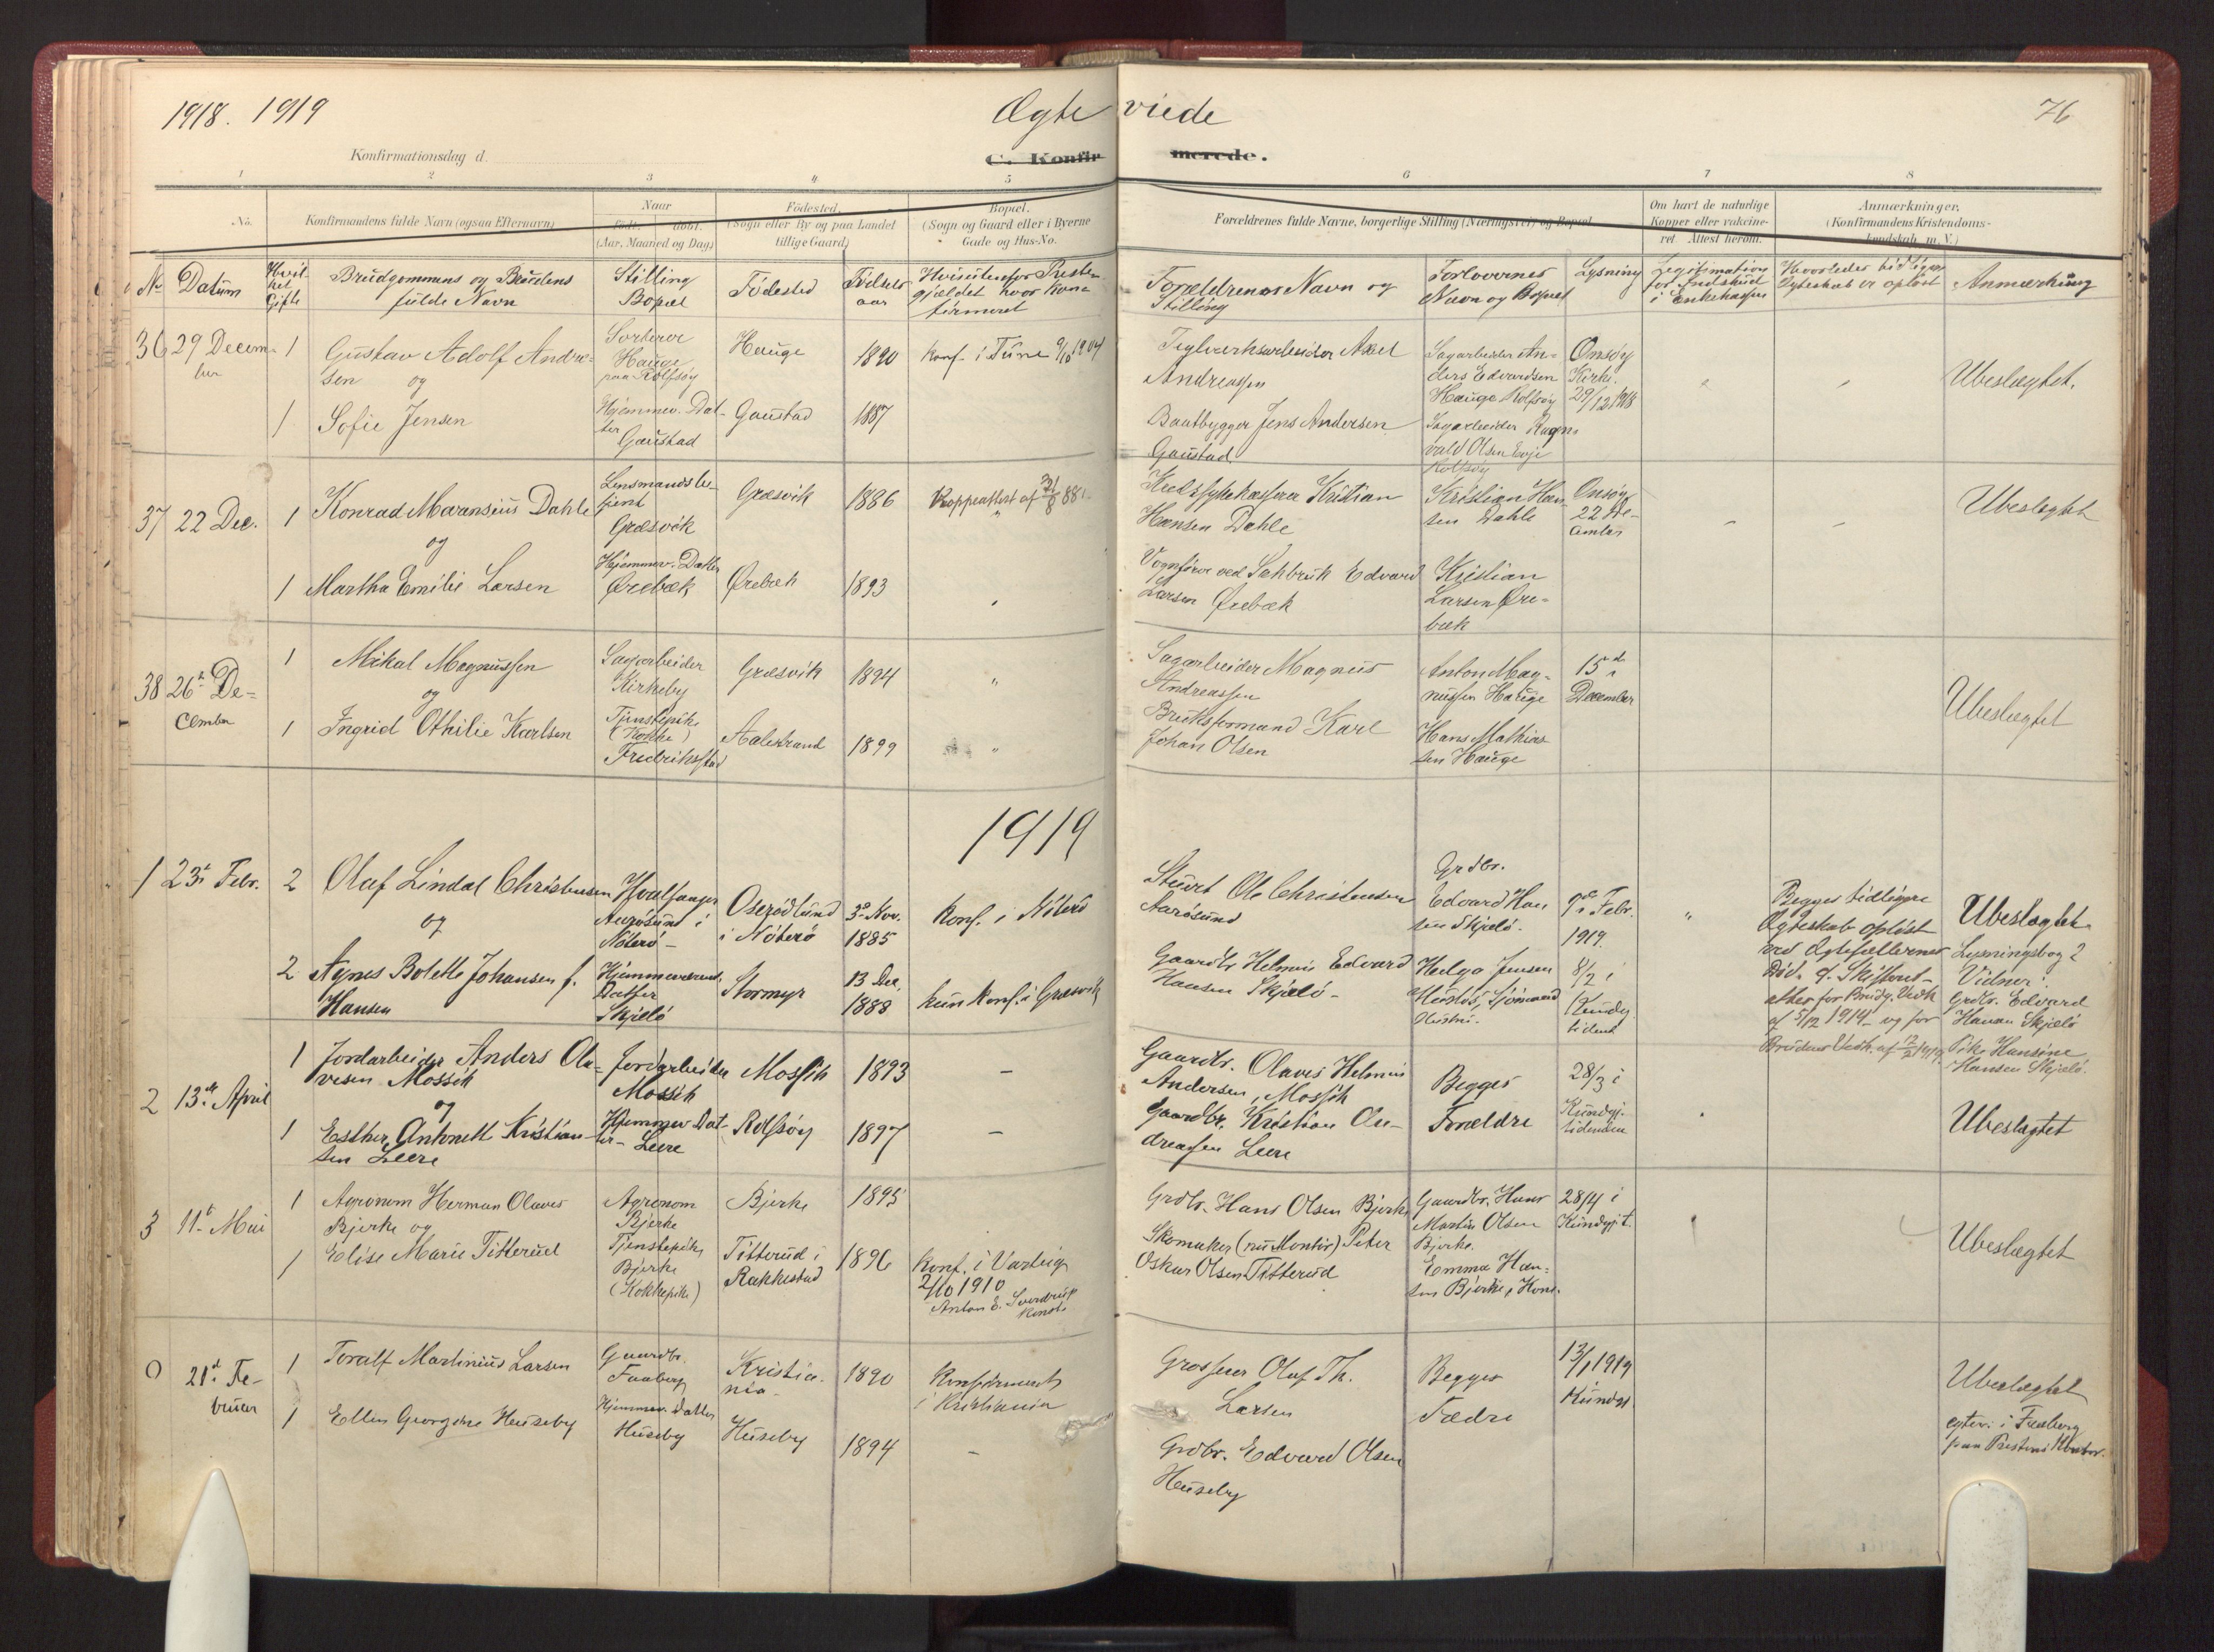 1918. 1919
Ægte viede
76
Konfirmationsdag d.
C. Konfirmerede.
1 2 3 4 5 6 7 8
No.
Konfirmandens fulde Navn (ogsaa Efternavn)
Naar
født. døbt.
(Aar, Maaned og Dag)
Fødested,
(Sogn eller By og paa Landet
tillige Gaard)
Bopæl.
(Sogn og Gaard eller i Byerne
Gade og Hus-No.
Forældrenes fulde Navne, borgerlige Stilling (Næringsvei) og Bopæl
Om havt de naturlige
Kopper eller vakcine-
ret Attest herom.
Anmærkninger,
(Konfirmandens Kristendoms-
kundskab m. V.)
No Datum
Hvil-
ket
Gifte
Brudgommens og Brudens
fulde Navn
Stilling
Bopæl
Födested
Födsels
aar
Hvis udenfor Preste-
gjældet hvor kon-
firmeret
Forældrenes Navn og
Stilling
Forlovernes
Navn og Bopæl
Lysning
Legitimation
for Indskud
i Enkekassen
Hvorledes tidligere
Ægteskab er oplöst
Anmærkning
36 29 Decem-
ber
1 Gustav Adolf Andre-
sen og
Sorterer
Hauge
paa Rolfsøy
Hauge
1890
Konf. i Tune 9/10 1904
Teglverksarbeider Axel
Andreassen
Sagarbeider An-
ders Edvardsen
Hauge Rolfsøy
Onsøy
Kirke.
29/12 1918
Ubeslægtet.
1 Sofie Jensen
Hjemmev. Dat-
ter
Gaustad
Gaustad
1887
Baatbygger Jens Andersen
Gaustad
Sagarbeider Ragn-
vald Olsen Evje
Rolfsøy
37 22 Dec. 1 Konrad Maransius Dahle
og
Lensmandsbe-
tjent
Græsvik
Græsvik
1886
Koppeattest af 31/8 88
Kredssykekasserer Kristian
Hansen Dahle
Kristian Han-
sen Dahle
Onsøy
22 De-
cember
Ubeslægtet
1 Martha Emilie Larsen
Hjemmev. Datter
Ørebæk
Ørebæk
1893
Vognfører ved Sækbruk Edvard
Larsen Ørebæk
Kristian
Larsen Øre-
bæk
38 26de De-
cember
1 Mikal Magnussen
og
Sagarbeider
Kirkeby
Græsvik
1894
"
Sagarbeider Magnus
Andreassen
Anton Mag-
nussen Hauge
15de
December
Ubeslægtet
1 Ingrid Othilie Karlsen
Tjenstepike
(Kokke)
Fredriksstad
Aalestrand
1899
"
Bruksformand Karl
Johan Olsen
Hans Mathias-
sen Hauge
1919
1 23de Febr. 2 Olaf Lindal Christensen
og
Hvalfanger
Aarøsund i
Nøterø
Oserødlund
i Nøterö
3de Nov.
1885
Konf. i Nöterö
Stuert Ole Christensen
Aarösund
Grdbr.
Edvard Han-
sen Skjælö.
9de Febr.
1919.
"
Begges tidligere
Ægteskab oplöst
ved Ægtefællernes
Død. J. Skifteret-
attes for Brudg. Vedk
af 5/12 1914 og for
Brudens Vedk. af 12/2 1919
Ubeslægtet
Lysningsbog 2
Vidner:
Grdbr. Edvard
Hansen Skjælö
Pike Hansine
Hansen Skjælö.
2 Agnes Bolette Johansen f.
Hansen
Hjemmeværende
Datter
Skjælö
Stormyr
13 Dec.
1888
kun konf. i Græsvik
Gaardbr Helmin Edvard
Hansen Skjælö
Helga Jensen
Sjömands
Hustru.
8/2 i
Kundg.
tidende
2 13de April 1 Jordarbeider Anders Ola-
vesen Mossik
og
Jordarbeider
Mossik
Mossik
1893
–
Gaardbr. Olaves Helmin
Andersen, Mossik
Begges
Forældre
28/3 i
Kundgj.
tidenden
Ubeslægtet
1 Esther Antonett Kristian-
sen Leere
Hjemmev Dat-
ter Leere
Rolfsöy
1897
–
Gaardbr. Kristian An-
dreassen Leere
3 11te Mai
1 Agronom Herman Olaves
Bjerke og
Agronom
Bjerke
Bjerke
1895
Grdbr. Hans Olsen Bjerke
Gaardbr. Hans
Martin Olsen
Bjerke.
28/4 i
Kundgjt.
Ubeslægtet
1 Elise Marie Titterud
Tjenstepike
Bjerke
(Kokkepike)
Titterud i
Rakkestad
1896
Konf. i Varteig
2/10 1910
Anton E. Sverdrup
Konst.
Skomaker (nu Montör) Peter
Oskar Olsen Titterud
Emma Han-
sen Bjerke, Kone.
0 21de Fe-
bruar
1 Toralf Martinius Larsen
Gaardbr.
Faaberg
Kristia-
nia
1890
Konfirmeret
i Kristiania
Grosserer Olaf Th.
Larsen
Begges
Fædre
13/1 1919
Kundgj
Ubeslægtet
egtev. i Faaberg
paa Prestens Kontor.
1 Ellen Georgine Huseby
Hjemmev. Datter
Huseby
Huseby
1894
–
Grdbr. Edvard Olsen
Huseby